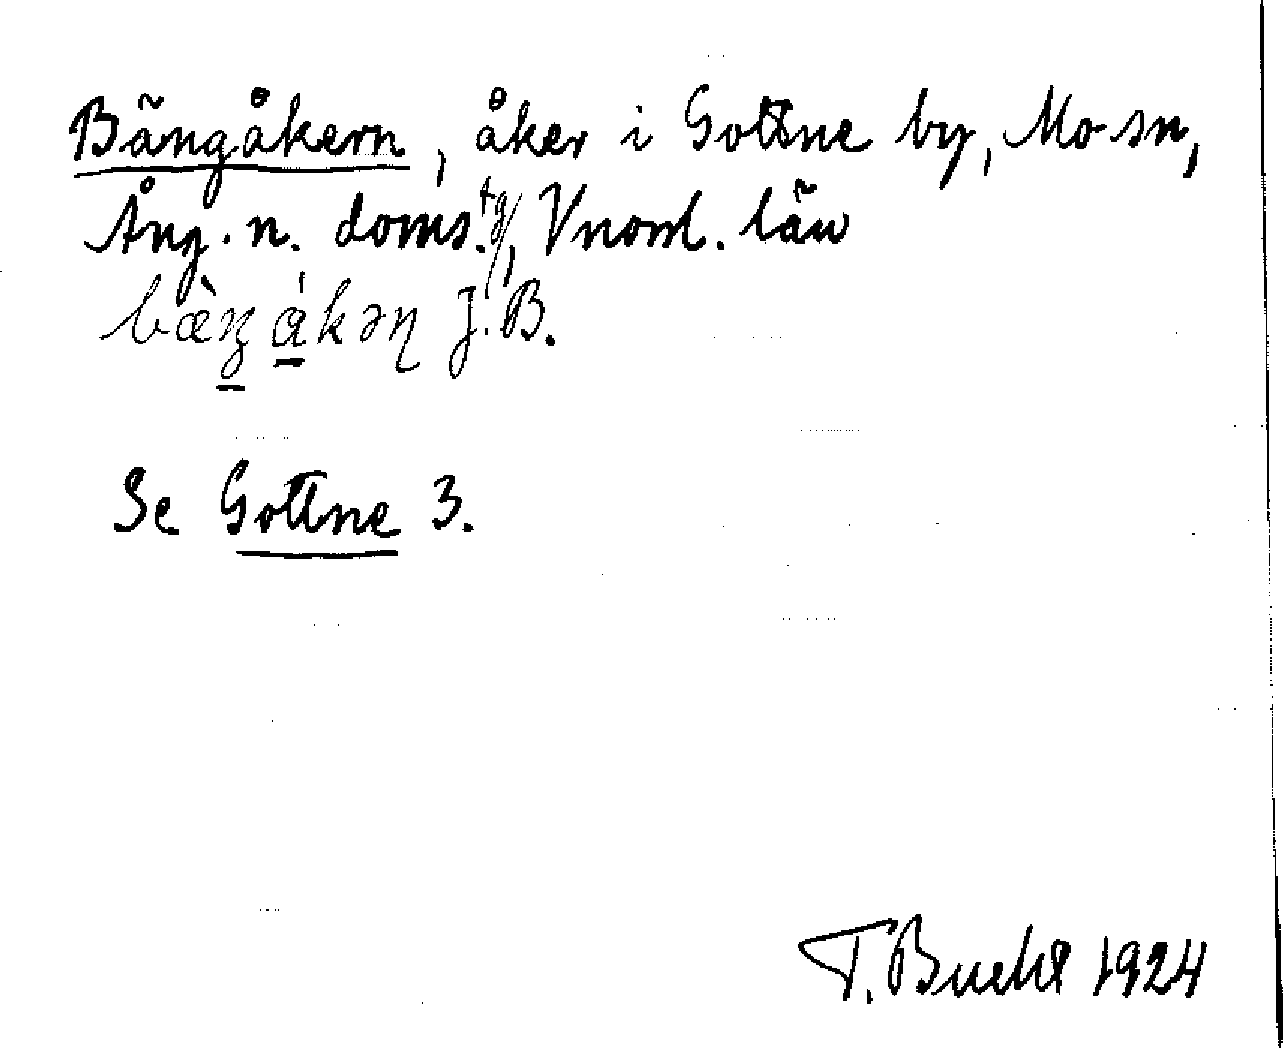 Bängåkern, åker i Gottne by, Mo sn,
Ång. n. doms.tg, Vnorrl. län
J. B.
Se Gottne 3.
T. Bucht 1924